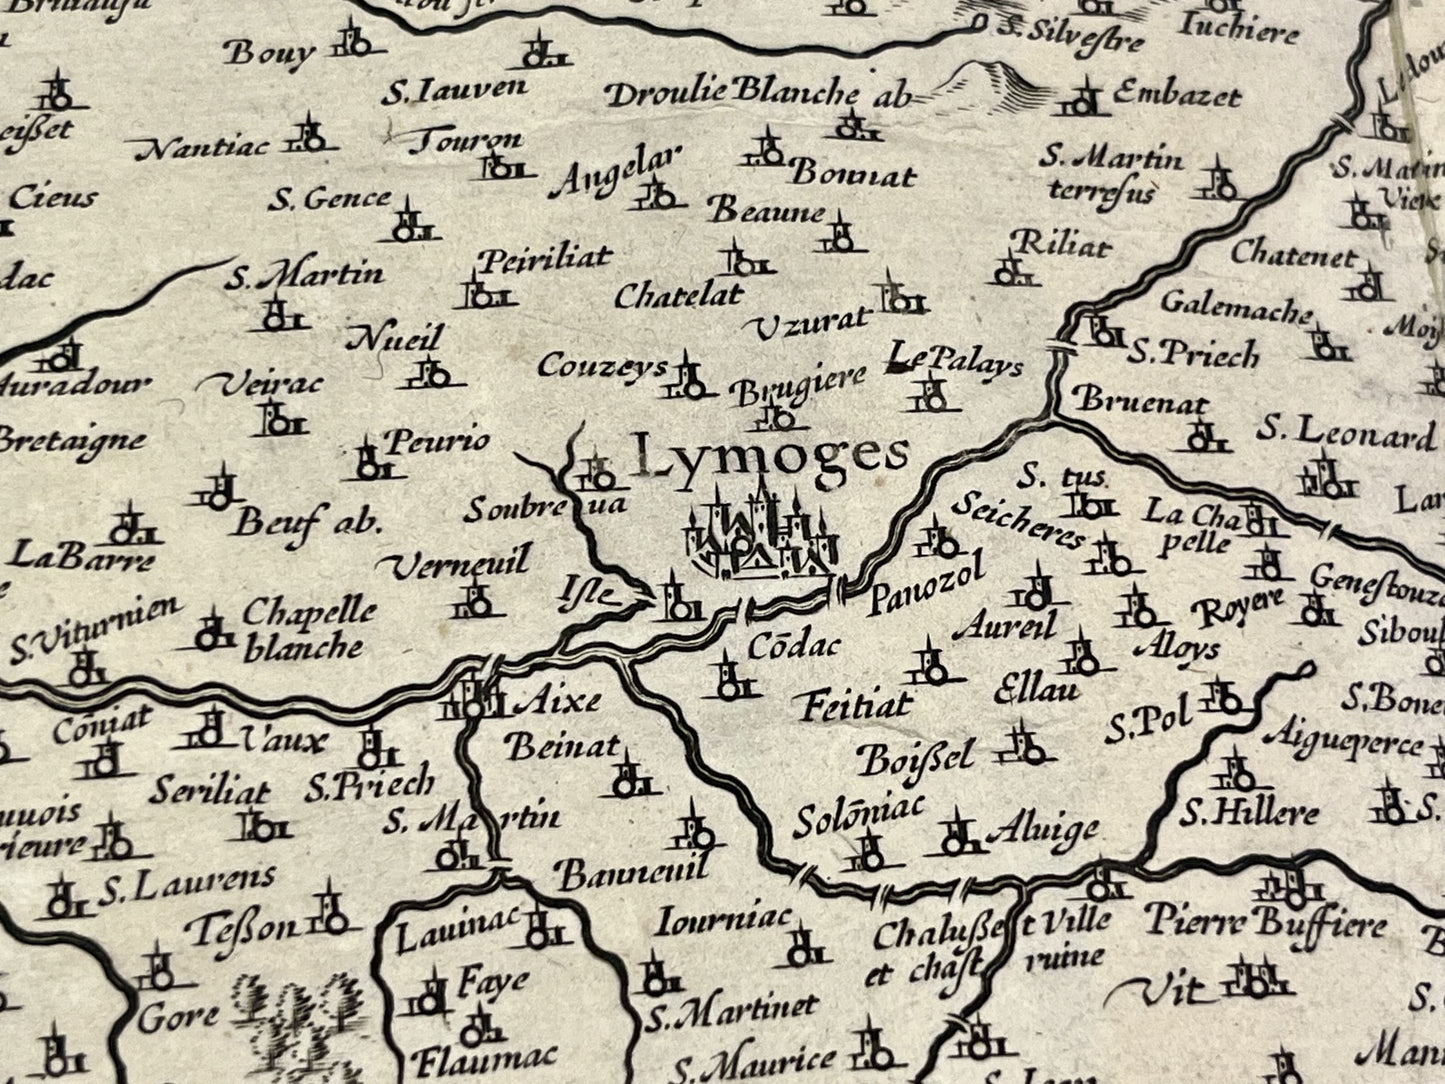 Bouy
S. Silvestre
Iuchiere
S. Iauven
Droulie Blanche ab
Embazet
Nantiac
Touron
Angelar
Bonnat
S. Martin
terresus
Cieus
S. Gence
Beaune
Riliat
Chatenet
S. Martin
Peiriliat
Chatelat
Vzurat
Galemache
Nueil
Couzeys
Brugiere
Le Palays
S. Priech
Auradour
Veirac
Bruenat
Bretaigne
Peurio
Lymoges
S. Leonard
Beuf ab.
Soubre ua
S. tus
Seicheres
La Cha
pelle
La Barre
Verneuil
Isle
Panozol
Royere
S. Viturnien
Chapelle
blanche
Cōdac
Aureil
Aloys
Cōniat
Vaux
Aixe
Feitiat
Ellau
S. Pol
Aigueperce
Beinat
Boißel
Seriliat
S. Priech
S. Martin
Solōniac
Aluige
S. Hillere
S. Laurens
Banneuil
Teßon
Lauinac
Iourniac
Chalußet Ville
et chast ruine
Pierre Buffiere
Gore
Faye
S. Martinet
Vit
Flaumac
S. Maurice